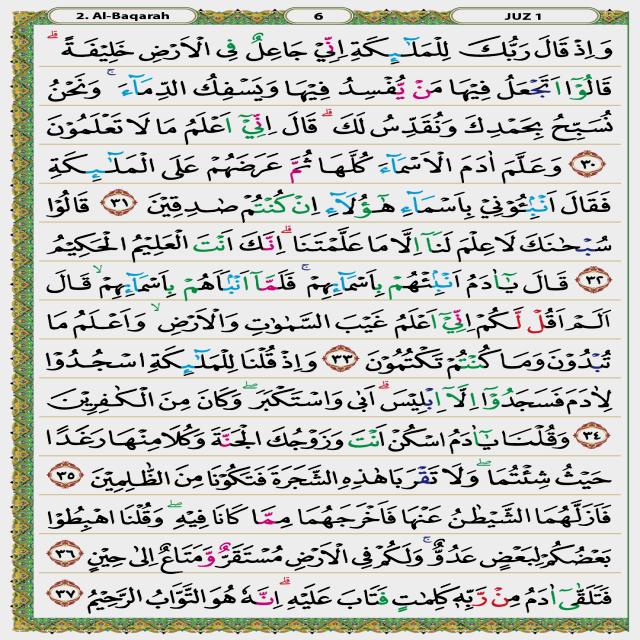 2. Al-Baqarah 6 JUZ 1
وَاِذْ قَالَ رَبُّكَ لِلْمَلٰٓىِٕكَةِ اِنِّيْ جَاعِلٌ فِى الْاَرْضِ خَلِيْفَةًۗ
قَالُوْٓا اَتَجْعَلُ فِيْهَا مَنْ يُّفْسِدُ فِيْهَا وَيَسْفِكُ الدِّمَاۤءَۚ وَنَحْنُ
نُسَبِّحُ بِحَمْدِكَ وَنُقَدِّسُ لَكَۗ قَالَ اِنِّيْٓ اَعْلَمُ مَا لَا تَعْلَمُوْنَ
٣٠ وَعَلَّمَ اٰدَمَ الْاَسْمَاۤءَ كُلَّهَا ثُمَّ عَرَضَهُمْ عَلَى الْمَلٰٓىِٕكَةِ
فَقَالَ اَنْۢبِـُٔوْنِيْ بِاَسْمَاۤءِ هٰٓؤُلَاۤءِ اِنْ كُنْتُمْ صٰدِقِيْنَ ٣١ قَالُوْا
سُبْحٰنَكَ لَا عِلْمَ لَنَآ اِلَّا مَا عَلَّمْتَنَاۗ اِنَّكَ اَنْتَ الْعَلِيْمُ الْحَكِيْمُ
٣٢ قَالَ يٰٓاٰدَمُ اَنْۢبِئْهُمْ بِاَسْمَاۤىِٕهِمْۚ فَلَمَّآ اَنْۢبَاَهُمْ بِاَسْمَاۤىِٕهِمْۙ قَالَ
اَلَمْ اَقُلْ لَّكُمْ اِنِّيْٓ اَعْلَمُ غَيْبَ السَّمٰوٰتِ وَالْاَرْضِۙ وَاَعْلَمُ مَا
تُبْدُوْنَ وَمَا كُنْتُمْ تَكْتُمُوْنَ ٣٣ وَاِذْ قُلْنَا لِلْمَلٰٓىِٕكَةِ اسْجُدُوْا
لِاٰدَمَ فَسَجَدُوْٓا اِلَّآ اِبْلِيْسَۗ اَبٰى وَاسْتَكْبَرَۖ وَكَانَ مِنَ الْكٰفِرِيْنَ
٣٤ وَقُلْنَا يٰٓاٰدَمُ اسْكُنْ اَنْتَ وَزَوْجُكَ الْجَنَّةَ وَكُلَا مِنْهَا رَغَدًا
حَيْثُ شِئْتُمَاۖ وَلَا تَقْرَبَا هٰذِهِ الشَّجَرَةَ فَتَكُوْنَا مِنَ الظّٰلِمِيْنَ ٣٥
فَاَزَلَّهُمَا الشَّيْطٰنُ عَنْهَا فَاَخْرَجَهُمَا مِمَّا كَانَا فِيْهِۖ وَقُلْنَا اهْبِطُوْا
بَعْضُكُمْ لِبَعْضٍ عَدُوٌّۚ وَلَكُمْ فِى الْاَرْضِ مُسْتَقَرٌّ وَّمَتَاعٌ اِلٰى حِيْنٍ ٣٦
فَتَلَقّٰٓى اٰدَمُ مِنْ رَّبِّهٖ كَلِمٰتٍ فَتَابَ عَلَيْهِۗ اِنَّهٗ هُوَ التَّوَّابُ الرَّحِيْمُ ٣٧